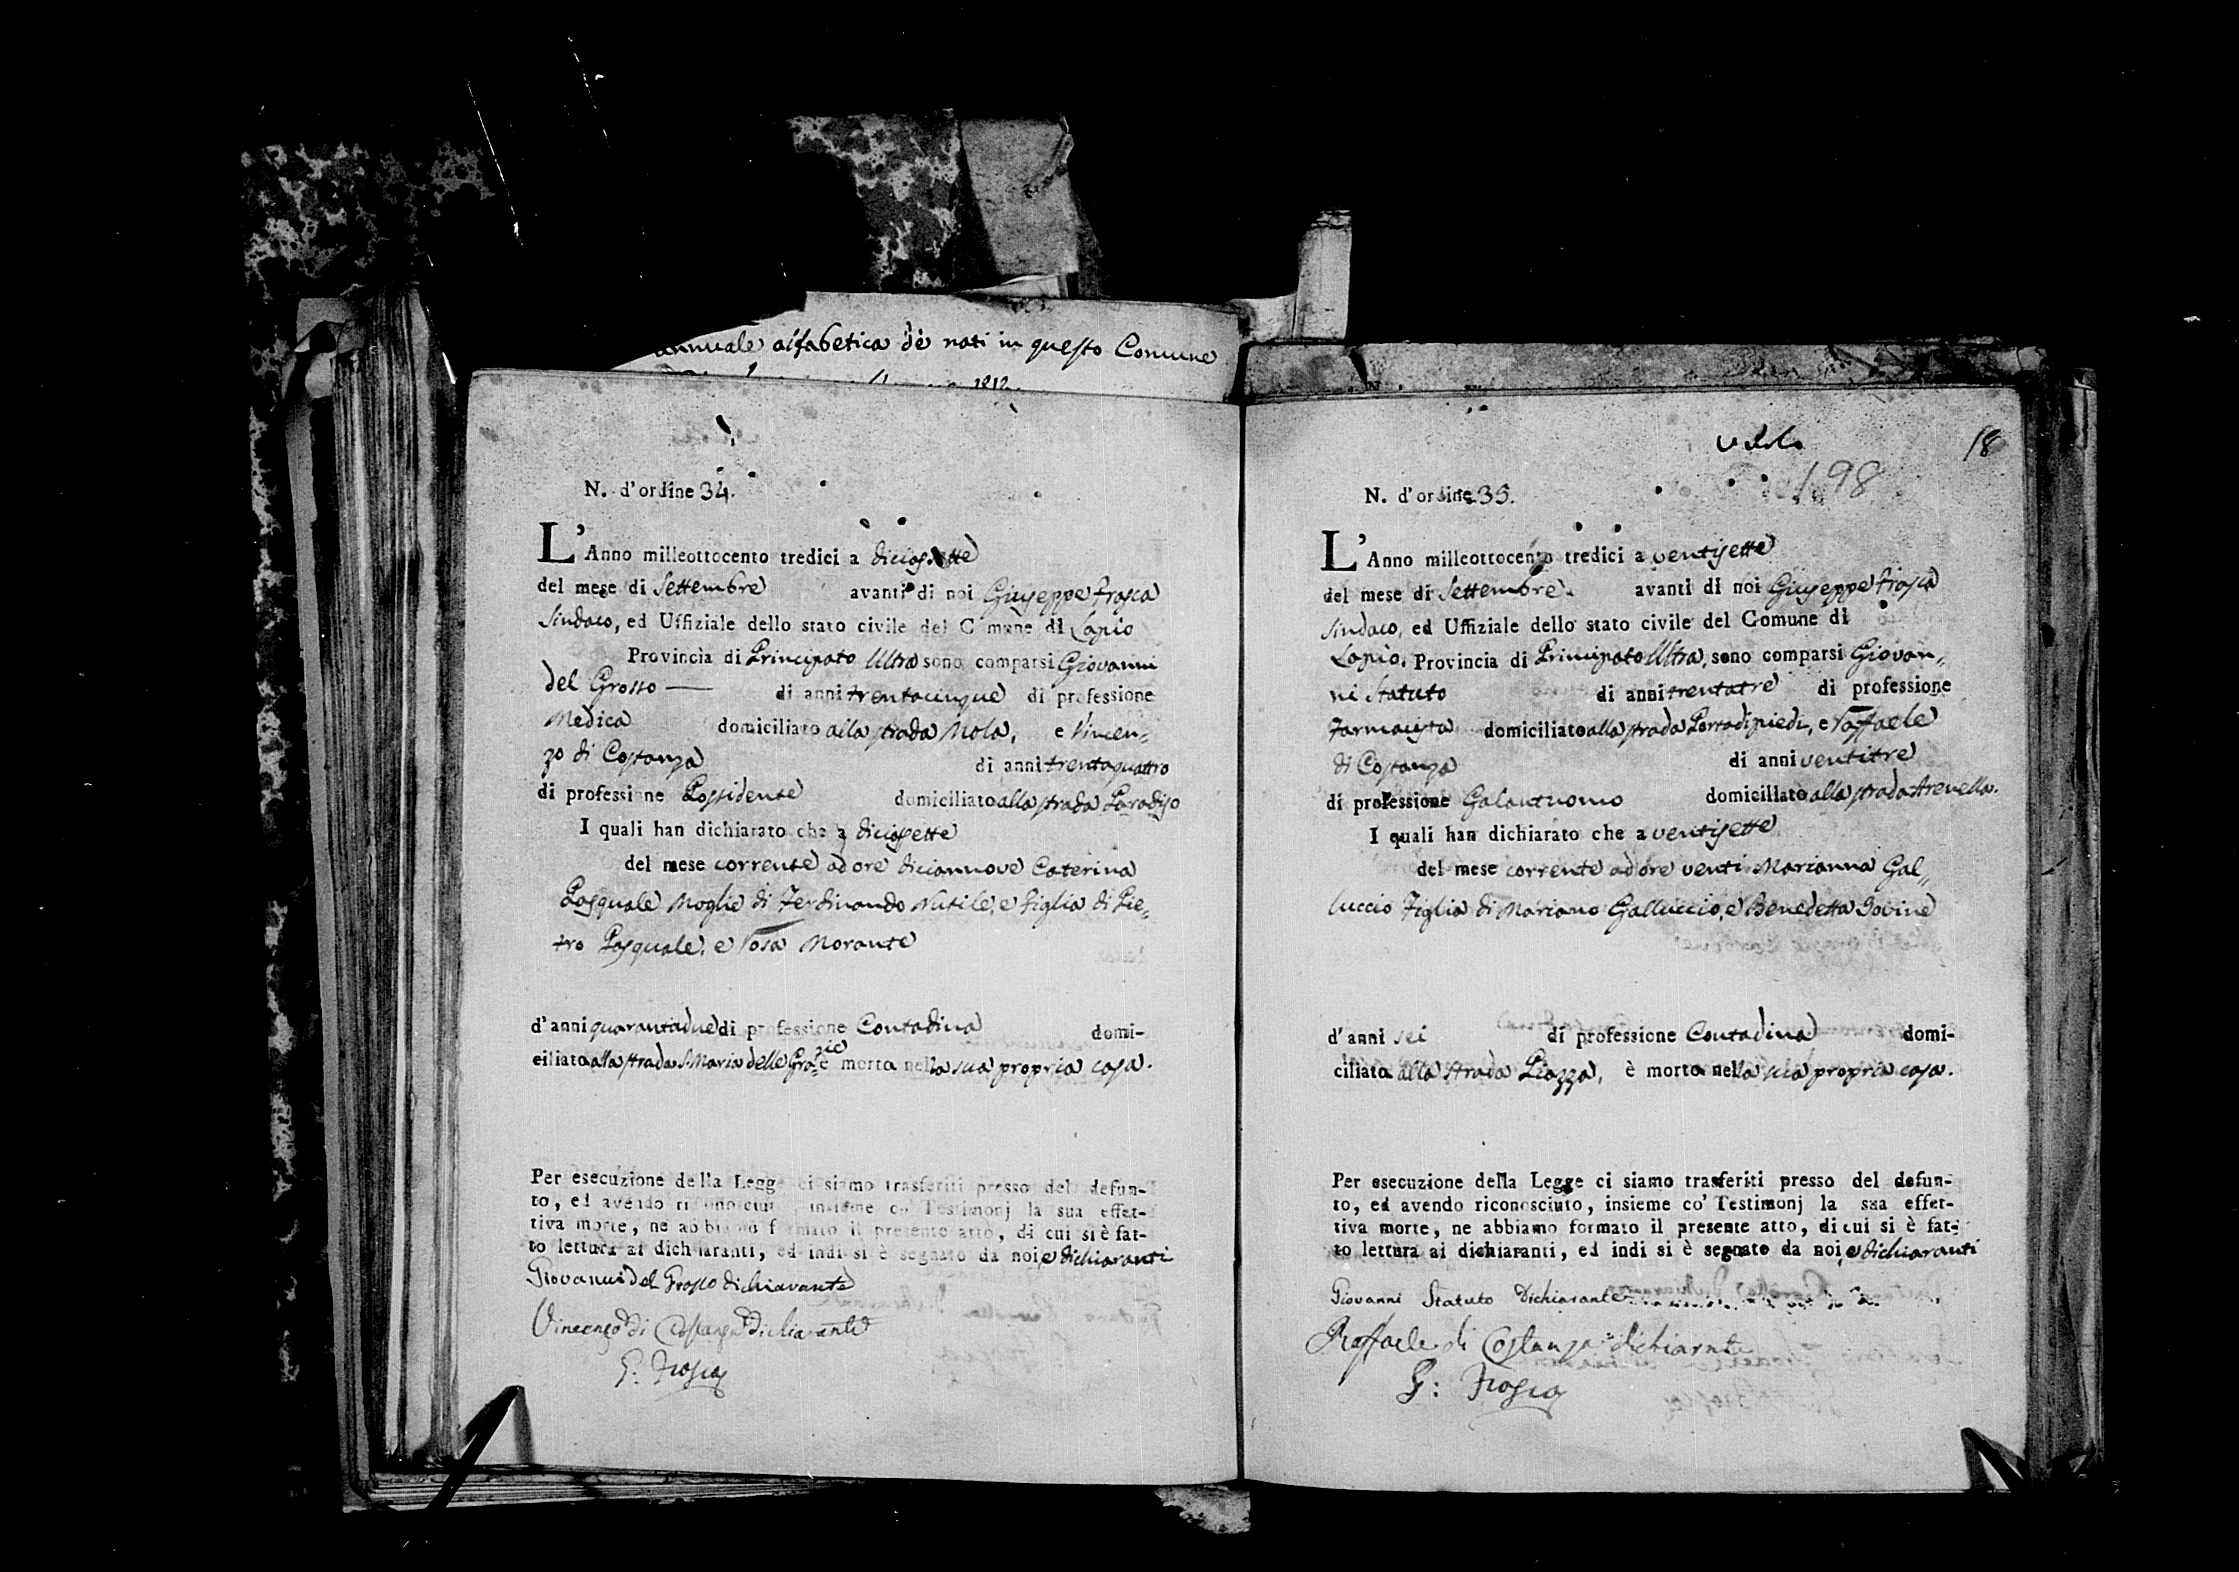 annuale alfabetica de nati in questo Comune
1812.
N. d'ordine 34.
L'Anno milleottocento tredici a diciassette
del mese di Settembre avanti di noi Giuseppe Frosca
Sindaco, ed Uffiziale dello stato civile del Comune di Lapio
Provincia di Principato Ultra sono comparsi Giovanni
del Grosso — di anni trentacinque di professione
Medico domiciliato alla strada Mola, e Vincen=
zo di Costanza di anni trentaquattro
di professione Possidente domiciliato alla strada Paradiso
I quali han dichiarato che a diciasette
del mese corrente ad ore diciannove Caterina
Pasquale Moglie di Ferdinando Nutile, e figlia di Pie=
tro Pasquale, e Rosa Morante
d'anni quarantadue di professione Contadina domi-
ciliata alla strada S. Maria delle Grazie è morta nella sua propria casa.
Per esecuzione della Legge ci siamo trasferiti presso del defun-
to, ed avendo riconosciuto, insieme co' Testimonj la sua effet-
tiva morte, ne abbiamo formato il presente atto, di cui si è fat-
to lettura ai dichiaranti, ed indi si è segnato da noi, e dichiaranti
Giovanni del Grosso dichiarante
Vincenzo di Costanza dichiarante
G: Frosca
18
198
N. d'ordine 35.
L'Anno milleottocento tredici a ventisette
del mese di Settembre avanti di noi Giuseppe Frosca
Sindaco, ed Uffiziale dello stato civile del Comune di
Lapio. Provincia di Principato Ultra, sono comparsi Giovan=
ni Statuto di anni trentatre di professione
Farmacista domiciliato alla strada Portadipiedi, e Raffaele
di Costanza di anni ventitre
di professione Galantuomo domiciliato alla strada Arenella.
I quali han dichiarato che a ventisette
del mese corrente ad ore venti Marianna Gal=
luccio Figlia di Mariano Galluccio, e Benedetta Iovine
d'anni sei di professione Contadina domi-
ciliata alla strada Piazza, è morta nella sua propria casa.
Per esecuzione della Legge ci siamo trasferiti presso del defun-
to, ed avendo riconosciuto, insieme co' Testimonj la sua effet-
tiva morte, ne abbiamo formato il presente atto, di cui si è fat-
to lettura ai dichiaranti, ed indi si è segnato da noi, e dichiaranti
Giovanni Statuto Dichiarante
Raffaele di Costanza dichiarante
G: Frosca